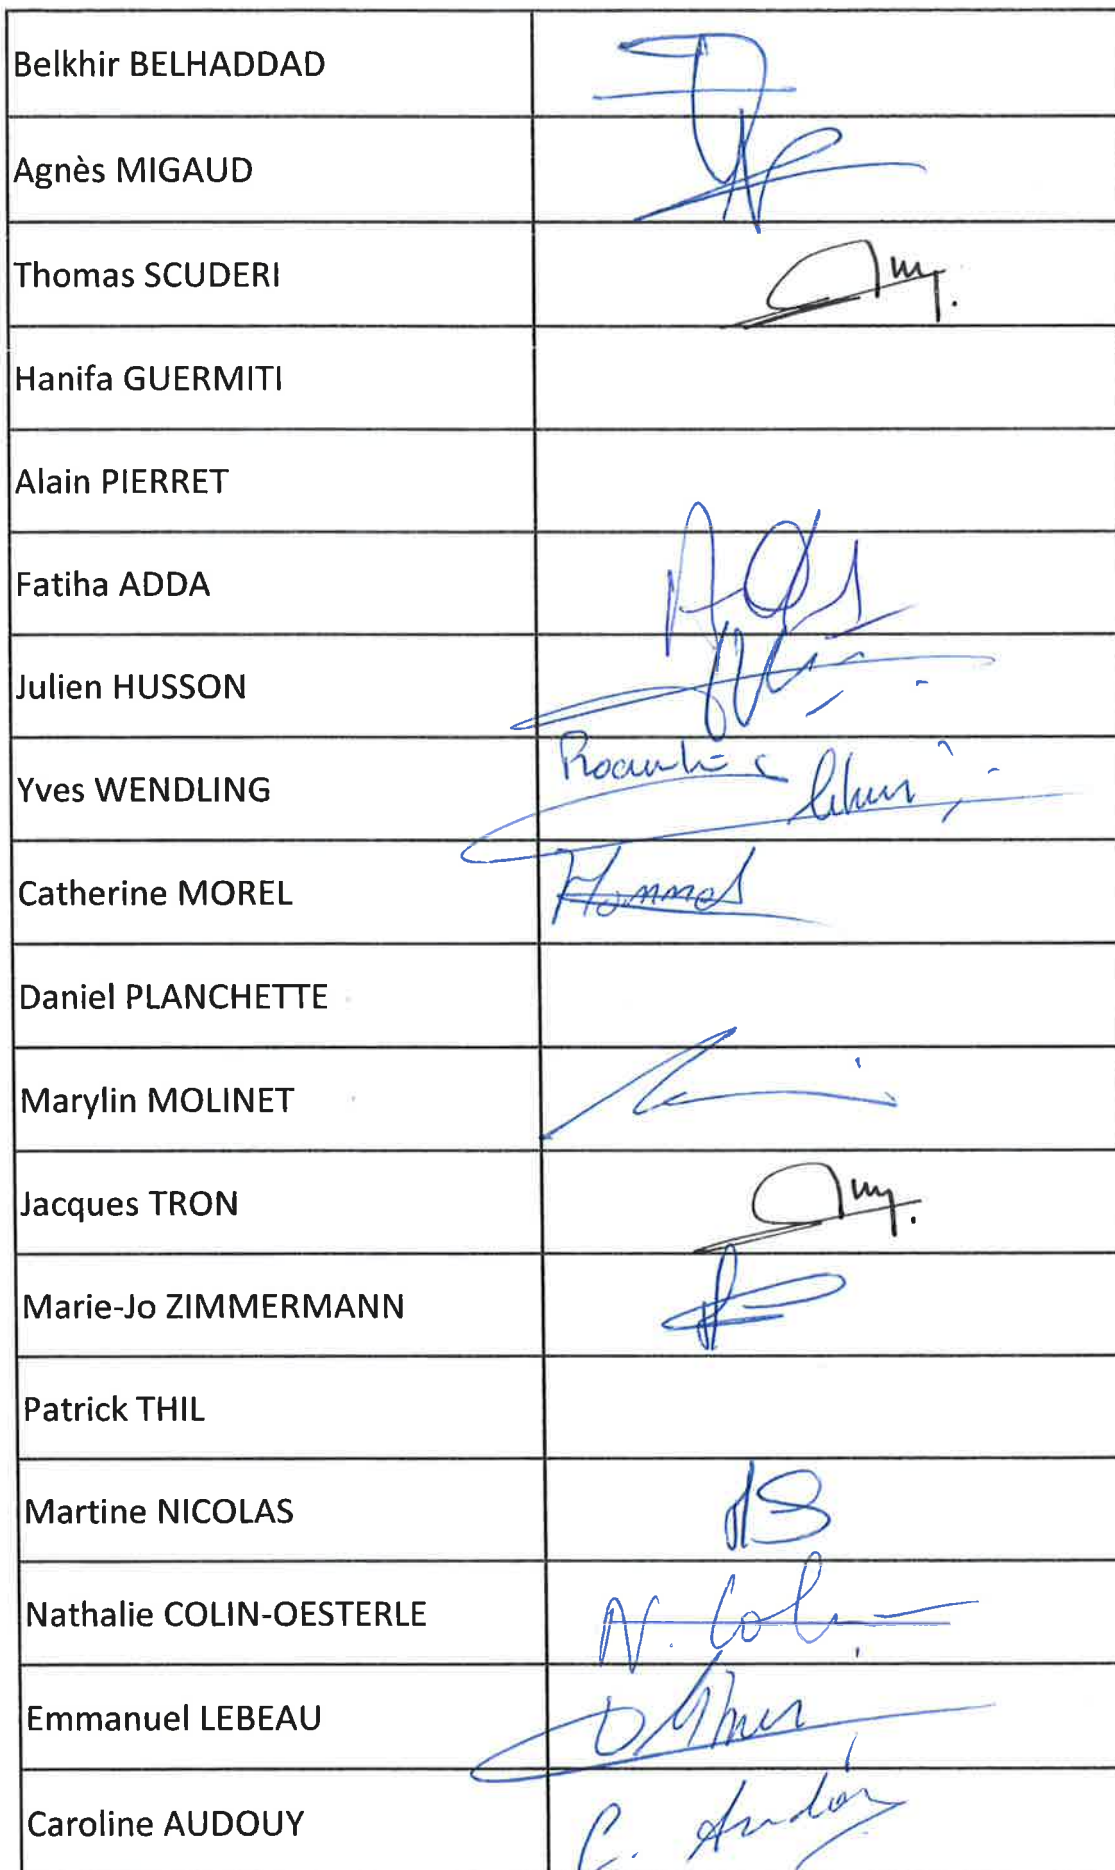 Belkhir BELHADDAD
Agnès MIGAUD
Thomas SCUDERI
Hanifa GUERMITI
Alain PIERRET
Fatiha ADDA
Julien HUSSON
Yves WENDLING
Catherine MOREL
Daniel PLANCHETTE
Marylin MOLINET
Jacques TRON
Marie-Jo ZIMMERMANN
Patrick THIL
Martine NICOLAS
Nathalie COLIN-OESTERLE N. Colin
Emmanuel LEBEAU
Caroline AUDOUY